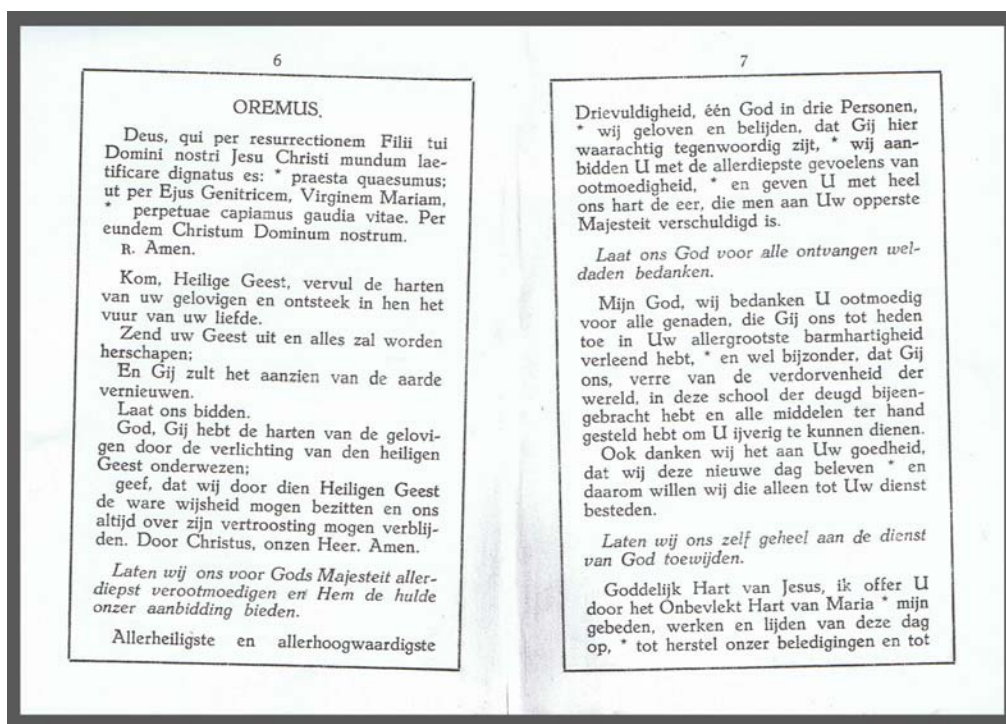 6
OREMUS.
Deus, qui per resurrectionem Filii tui
Domini nostri Jesu Christi mundum lae-
tificare dignatus es: * praesta quaesumus;
ut per Ejus Genitricem, Virginem Mariam,
* perpetuae capiamus gaudia vitae. Per
eundem Christum Dominum nostrum.
R. Amen.
Kom, Heilige Geest, vervul de harten
van uw gelovigen en ontsteek in hen het
vuur van uw liefde.
Zend uw Geest uit en alles zal worden
herschapen;
En Gij zult het aanzien van de aarde
vernieuwen.
Laat ons bidden.
God, Gij hebt de harten van de gelovi-
gen door de verlichting van den heiligen
Geest onderwezen;
geef, dat wij door dien Heiligen Geest
de ware wijsheid mogen bezitten en ons
altijd over zijn vertroosting mogen verblij-
den. Door Christus, onzen Heer. Amen.
Laten wij ons voor Gods Majesteit aller-
diepst verootmoedigen en Hem de hulde
onzer aanbidding bieden.
Allerheiligste en allerhoogwaardigste
7
Drievuldigheid, één God in drie Personen,
* wij geloven en belijden, dat Gij hier
waarachtig tegenwoordig zijt, * wij aan-
bidden U met de allerdiepste gevoelens van
ootmoedigheid, * en geven U met heel
ons hart de eer, die men aan Uw opperste
Majesteit verschuldigd is.
Laat ons God voor alle ontvangen wel-
daden bedanken.
Mijn God, wij bedanken U ootmoedig
voor alle genaden, die Gij ons tot heden
toe in Uw allergrootste barmhartigheid
verleend hebt, * en wel bijzonder, dat Gij
ons, verre van de verdorvenheid der
wereld, in deze school der deugd bijeen-
gebracht hebt en alle middelen ter hand
gesteld hebt om U ijverig te kunnen dienen.
Ook danken wij het aan Uw goedheid,
dat wij deze nieuwe dag beleven * en
daarom willen wij die alleen tot Uw dienst
besteden.
Laten wij ons zelf geheel aan de dienst
van God toewijden.
Goddelijk Hart van Jesus, ik offer U
door het Onbevlekt Hart van Maria * mijn
gebeden, werken en lijden van deze dag
op, * tot herstel onzer beledigingen en tot